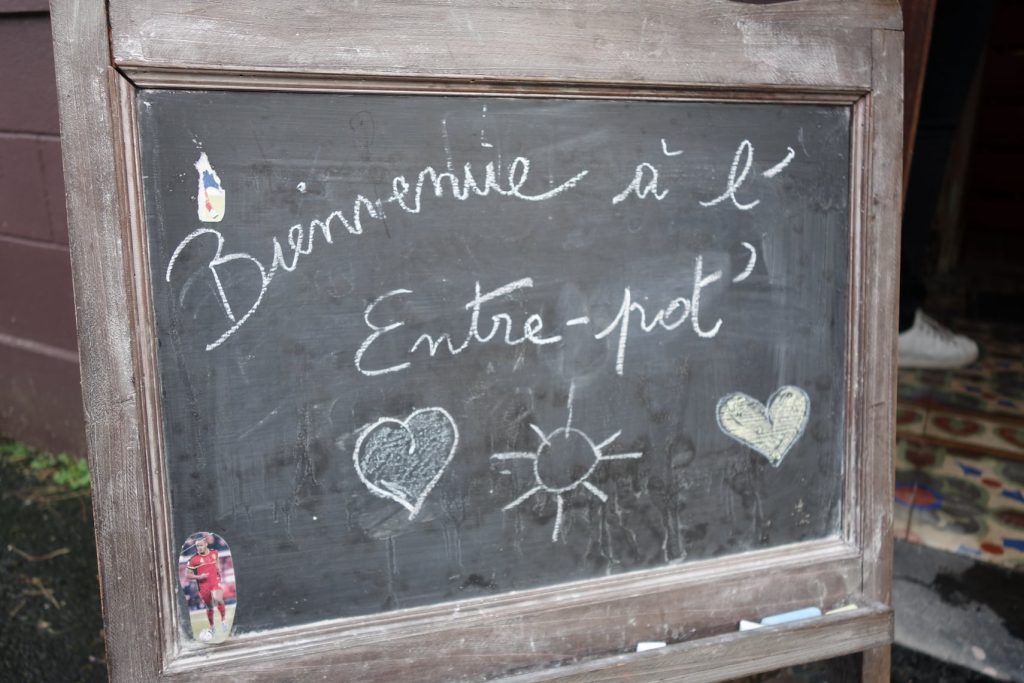 Bienvenue à l'
Entre-pot'